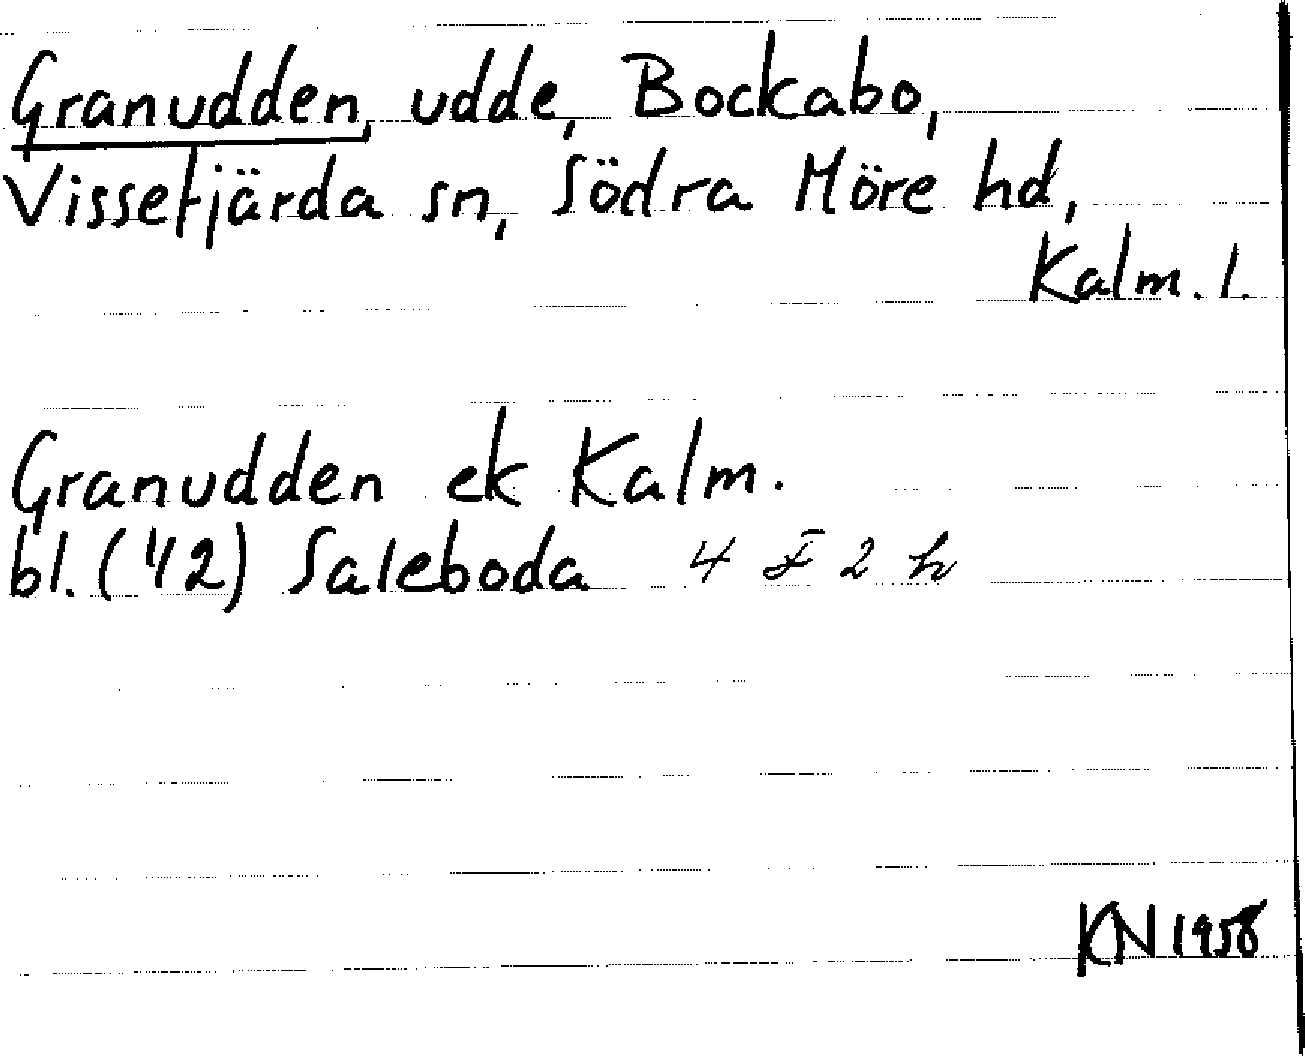 Granudden, udde, Bockabo,
Vissefjärda sn, Södra Möre hd,
Kalm. l.
Granudden ek Kalm.
bl. ('42) Saleboda 4 F 2 h
KN 1958